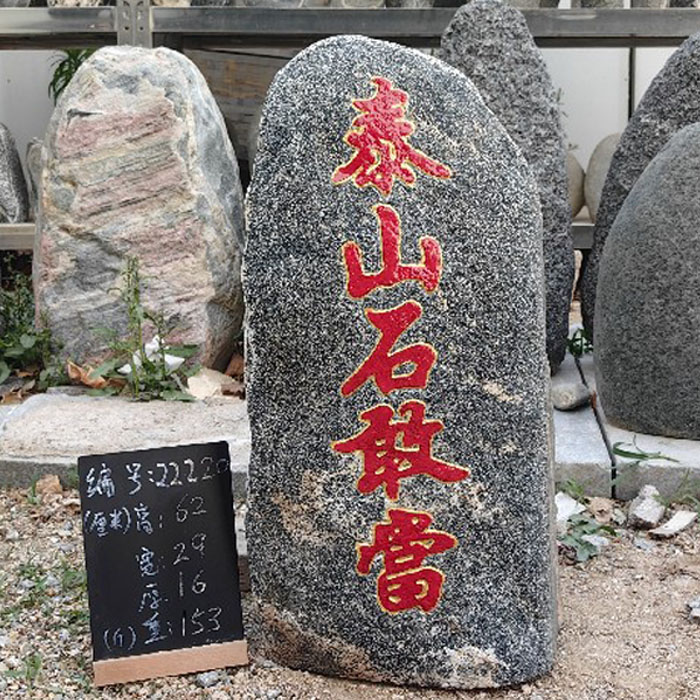 泰山石敢當
编号:22220
(厘米)高:62
宽:29
厚:16
(斤)重:153